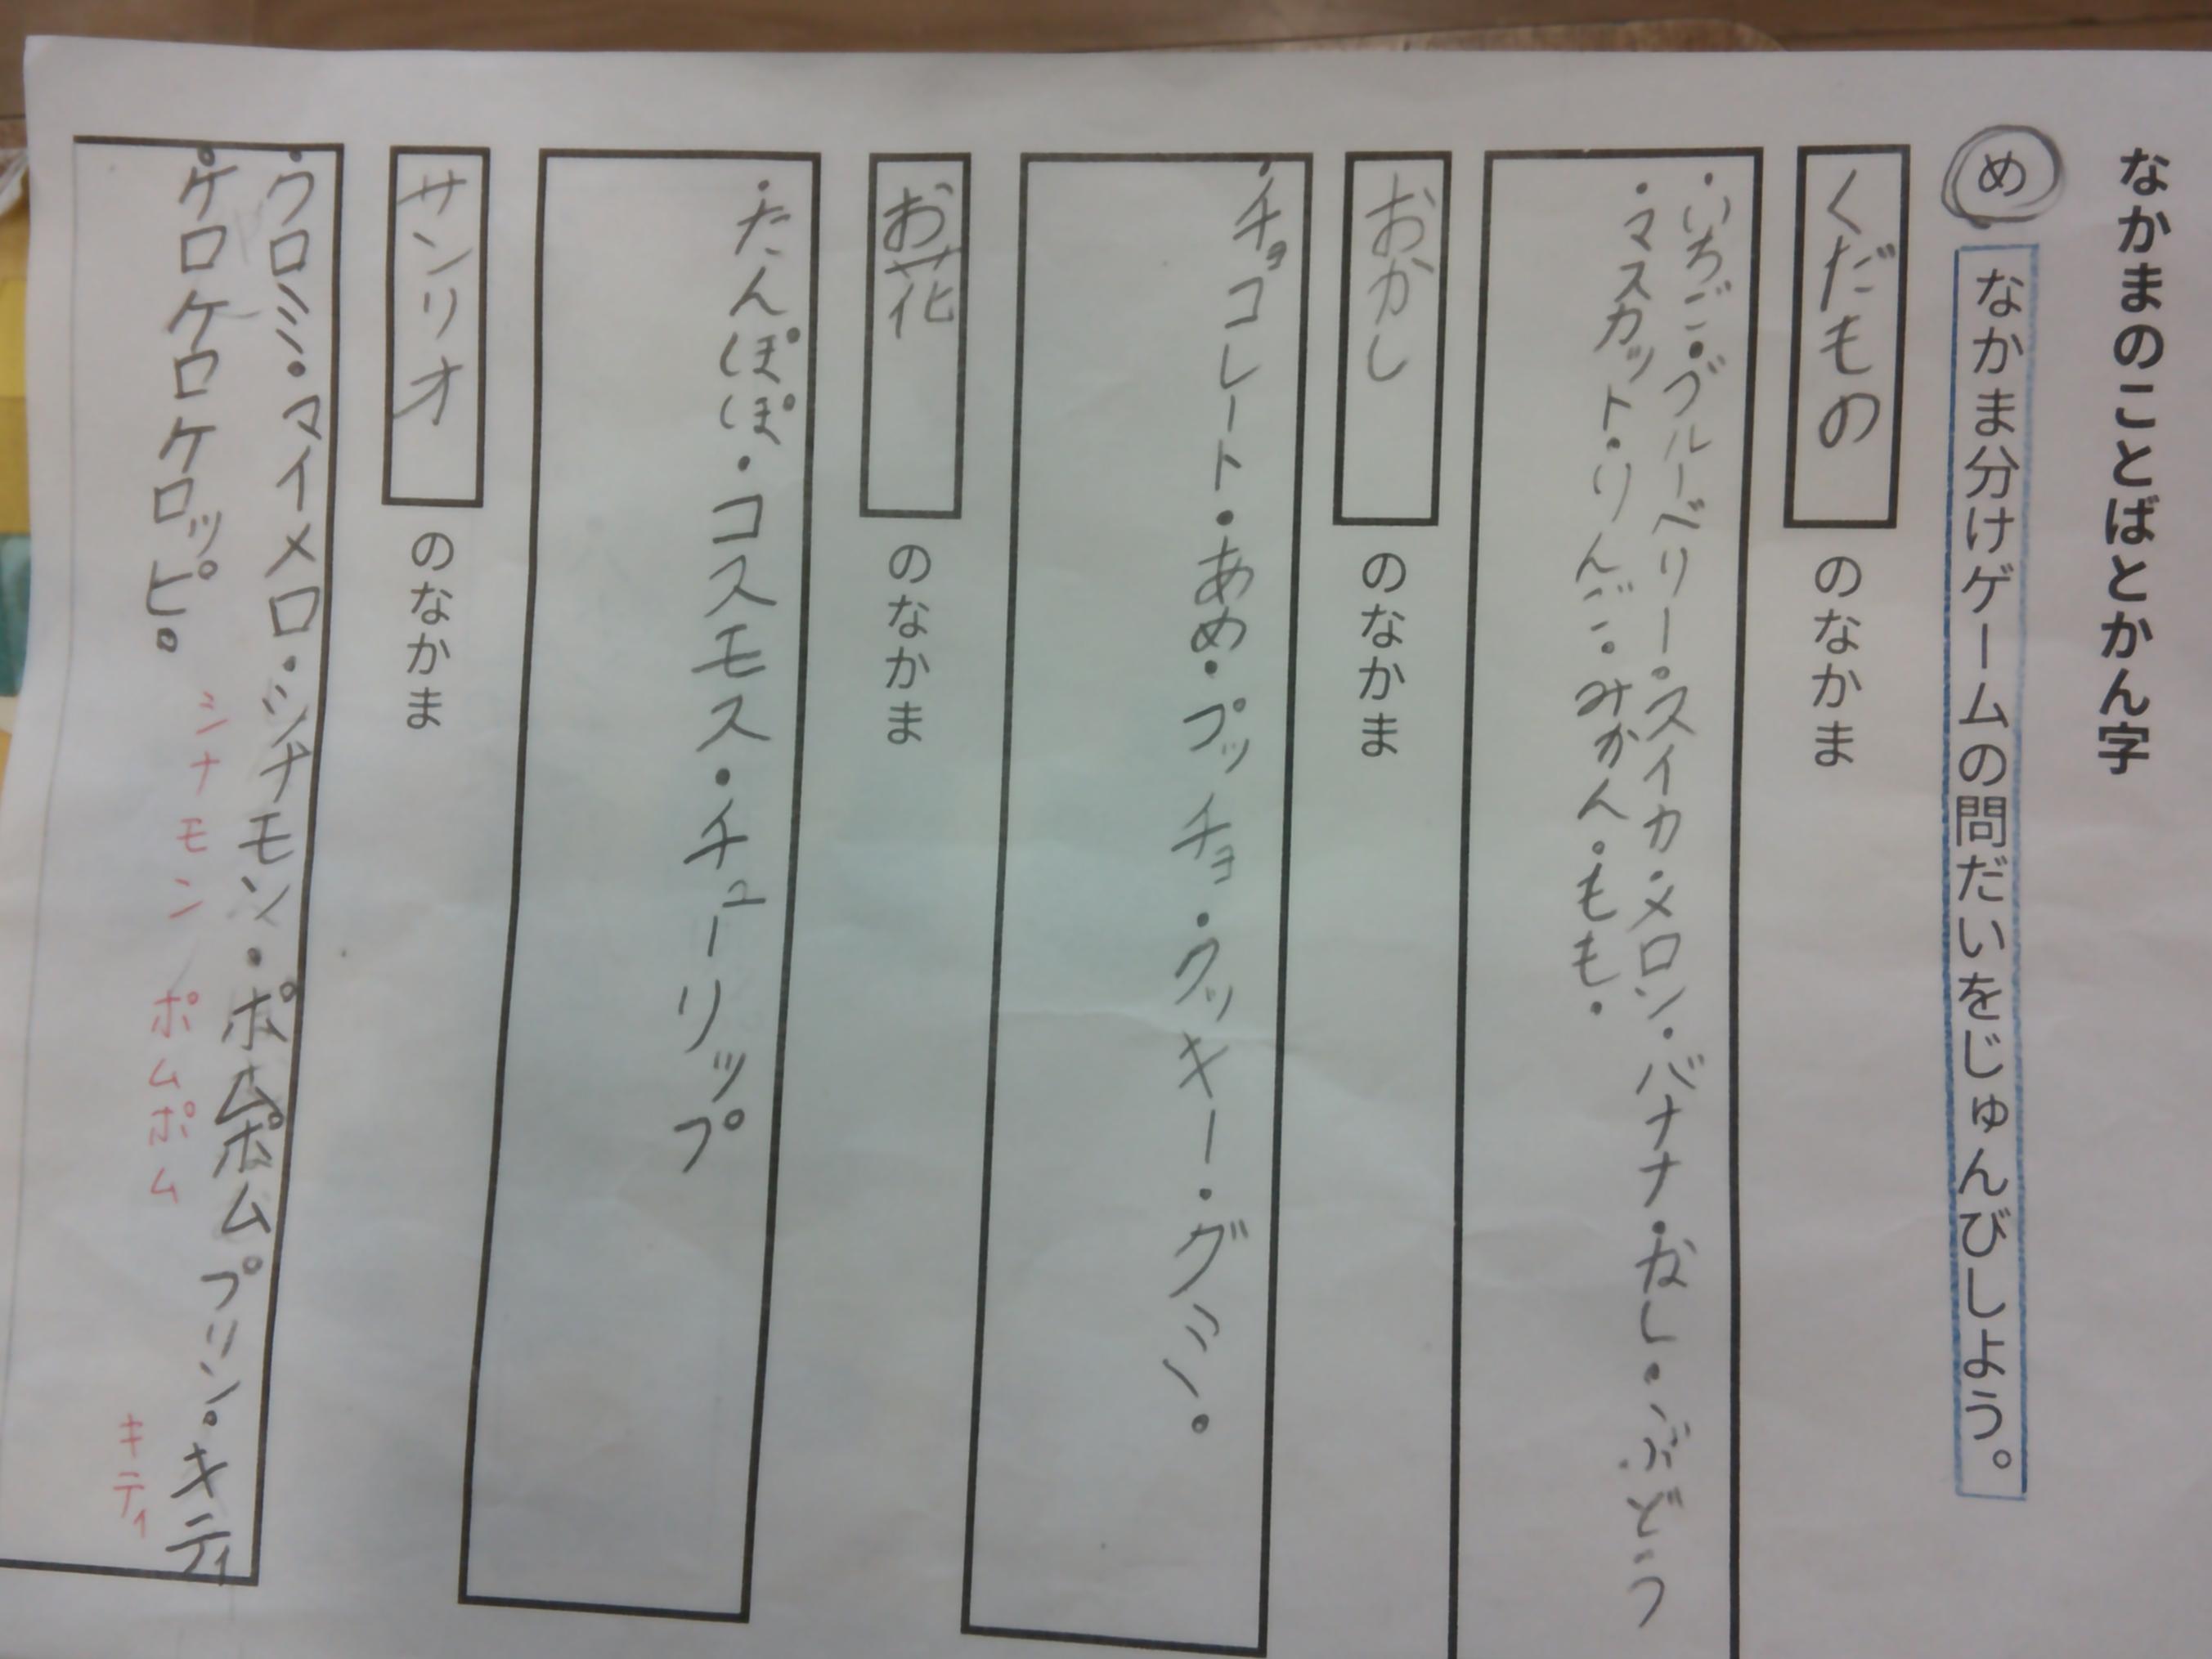 なかまのことばとかん字
め なかま分けゲームの問だいをじゅんびしよう。
くだもの のなかま
・いちご・ブルーベリー・スイカ・メロン・バナナ・なし・ぶどう
・マスカット・りんご・みかん・もも・
おかし のなかま
・チョコレート・あめ・プッチョ・クッキー・グミ・
お花 のなかま
・たんぽぽ・コスモス・チューリップ
サンリオ のなかま
・クロミ・マイメロ・シナモン・ポムポムプリン・キティ
・ケロケロケロッピ・
シナモン ポムポム キティ